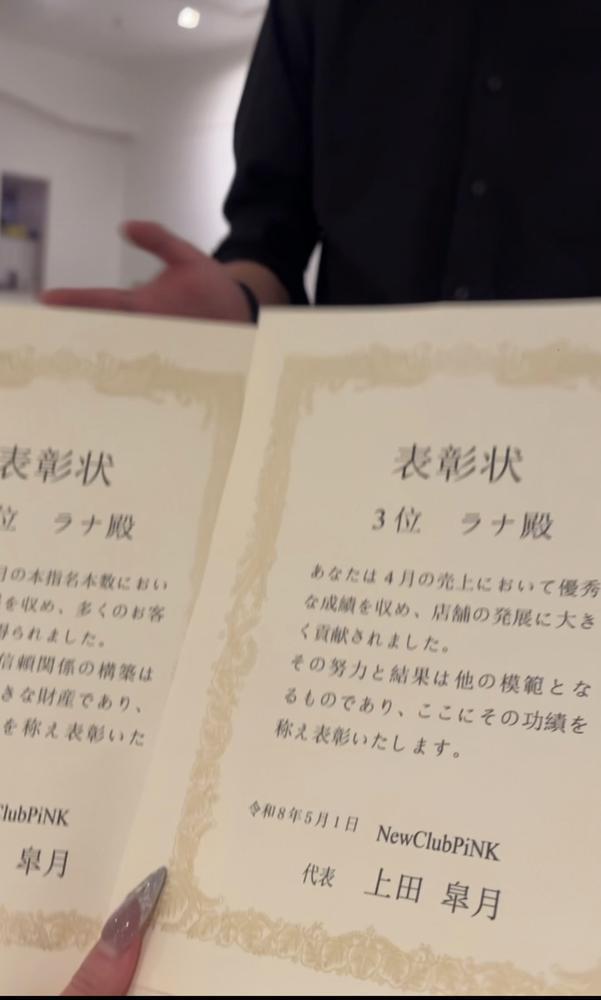 表彰状
位 ラナ殿
月の本指名本数におい
を収め、多くのお客
得られました。
信頼関係の構築は
きな財産であり、
を称え表彰いた
ClubPiNK
皐月
表彰状
3位 ラナ殿
あなたは4月の売上において優秀
な成績を収め、店舗の発展に大き
く貢献されました。
その努力と結果は他の模範とな
るものであり、ここにその功績を
称え表彰いたします。
令和8年5月1日 NewClubPiNK
代表 上田 皐月